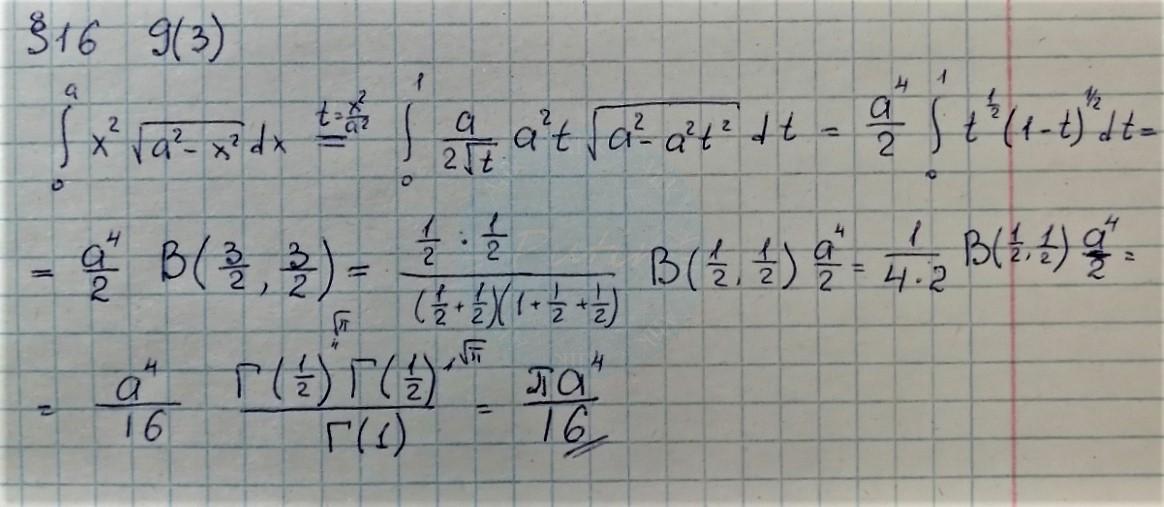 §16 9(3)
∫₀ᵃ x² √(a² - x²) dx =(t = x²/a²)= ∫₀¹ a/(2√t) a² t √(a² - a² t²) dt = a⁴/2 ∫₀¹ t^(1/2) (1-t)^(1/2) dt =
= a⁴/2 B(3/2, 3/2) = (1/2 · 1/2)/((1/2 + 1/2)(1 + 1/2 + 1/2)) B(1/2, 1/2) a⁴/2 = 1/(4·2) B(1/2, 1/2) a⁴/2 =
= a⁴/16 (Γ(1/2)^(" √π) Γ(1/2)^(" √π))/Γ(1) = πa⁴/16